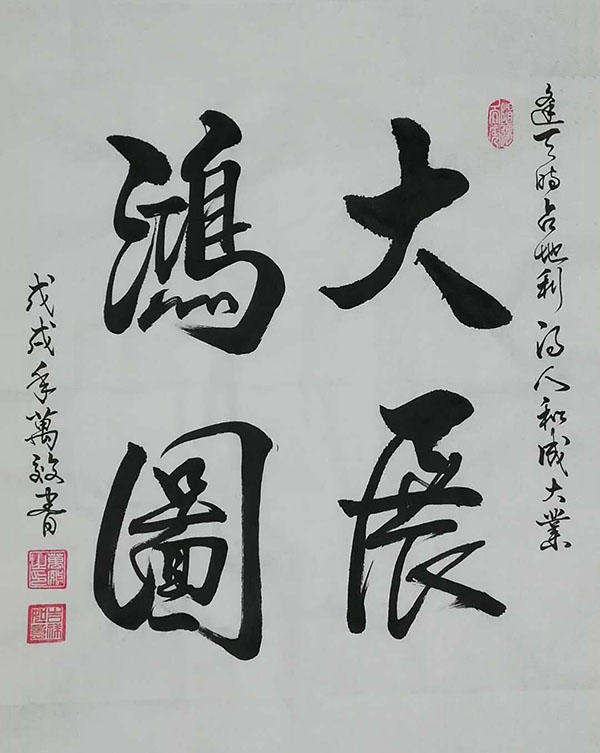 逢天時占地利得人和成大業
大展
鴻圖
戊戌年萬毅書